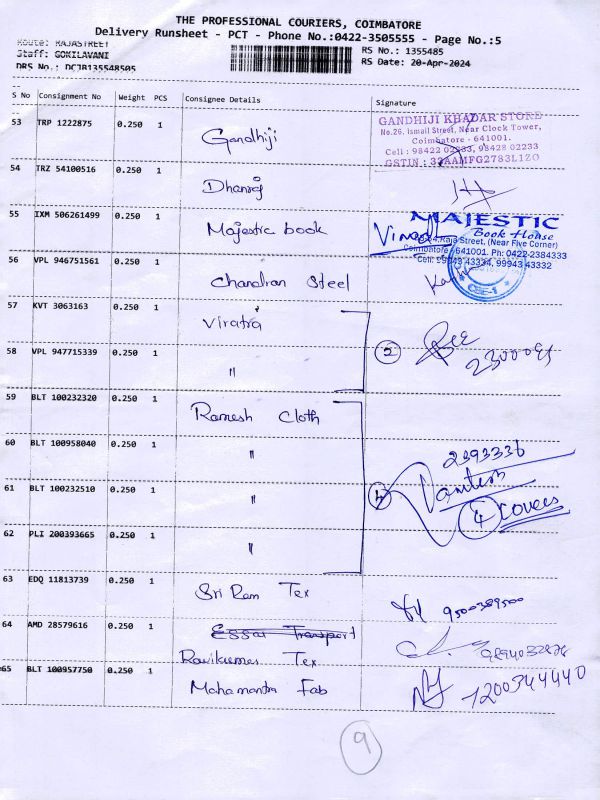 THE PROFESSIONAL COURIERS, COIMBATORE
Delivery Runsheet - PCT - Phone No.:0422-3505555 - Page No.:5
Route: RAJASTREET
Staff: GOKILAVANI
DRS No.: DCJB135548505
RS No.: 1355485
RS Date: 20-Apr-2024
S No Consignment No Weight PCS Consignee Details Signature
53 TRP 1222875 0.250 1 Gandhiji
GANDHIJI KHADAR STORE
No.26, Ismail Street, Near Clock Tower,
Coimbatore - 641001.
Cell : 98422 02233, 98428 02233
GSTIN : 33AAMFG2783L1ZO
54 TRZ 54100516 0.250 1 Dhanraj
55 IXM 506261499 0.250 1 Majestra book
MAJESTIC
Book House
Raja Street, (Near Five Corner)
Coimbatore - 641001. Ps: 0422-2384333
Cell: 99943 43334, 99943 43332
56 VPL 946751561 0.250 1 Chandran Steel
57 KVT 3063163 0.250 1 Viratra
58 VPL 947715339 0.250 1 "
2
59 BLT 100232320 0.250 1 Ramesh Cloth
60 BLT 100958040 0.250 1 "
2393336
61 BLT 100232510 0.250 1 "
4 covers
62 PLI 200393665 0.250 1 "
63 EDQ 11813739 0.250 1 Sri Ram Tex
9500389500
64 AMD 28579616 0.250 1 Essar Transport
Ravikumar Tex
65 BLT 100957750 0.250 1 Mahamantra Fab
7200344440
9